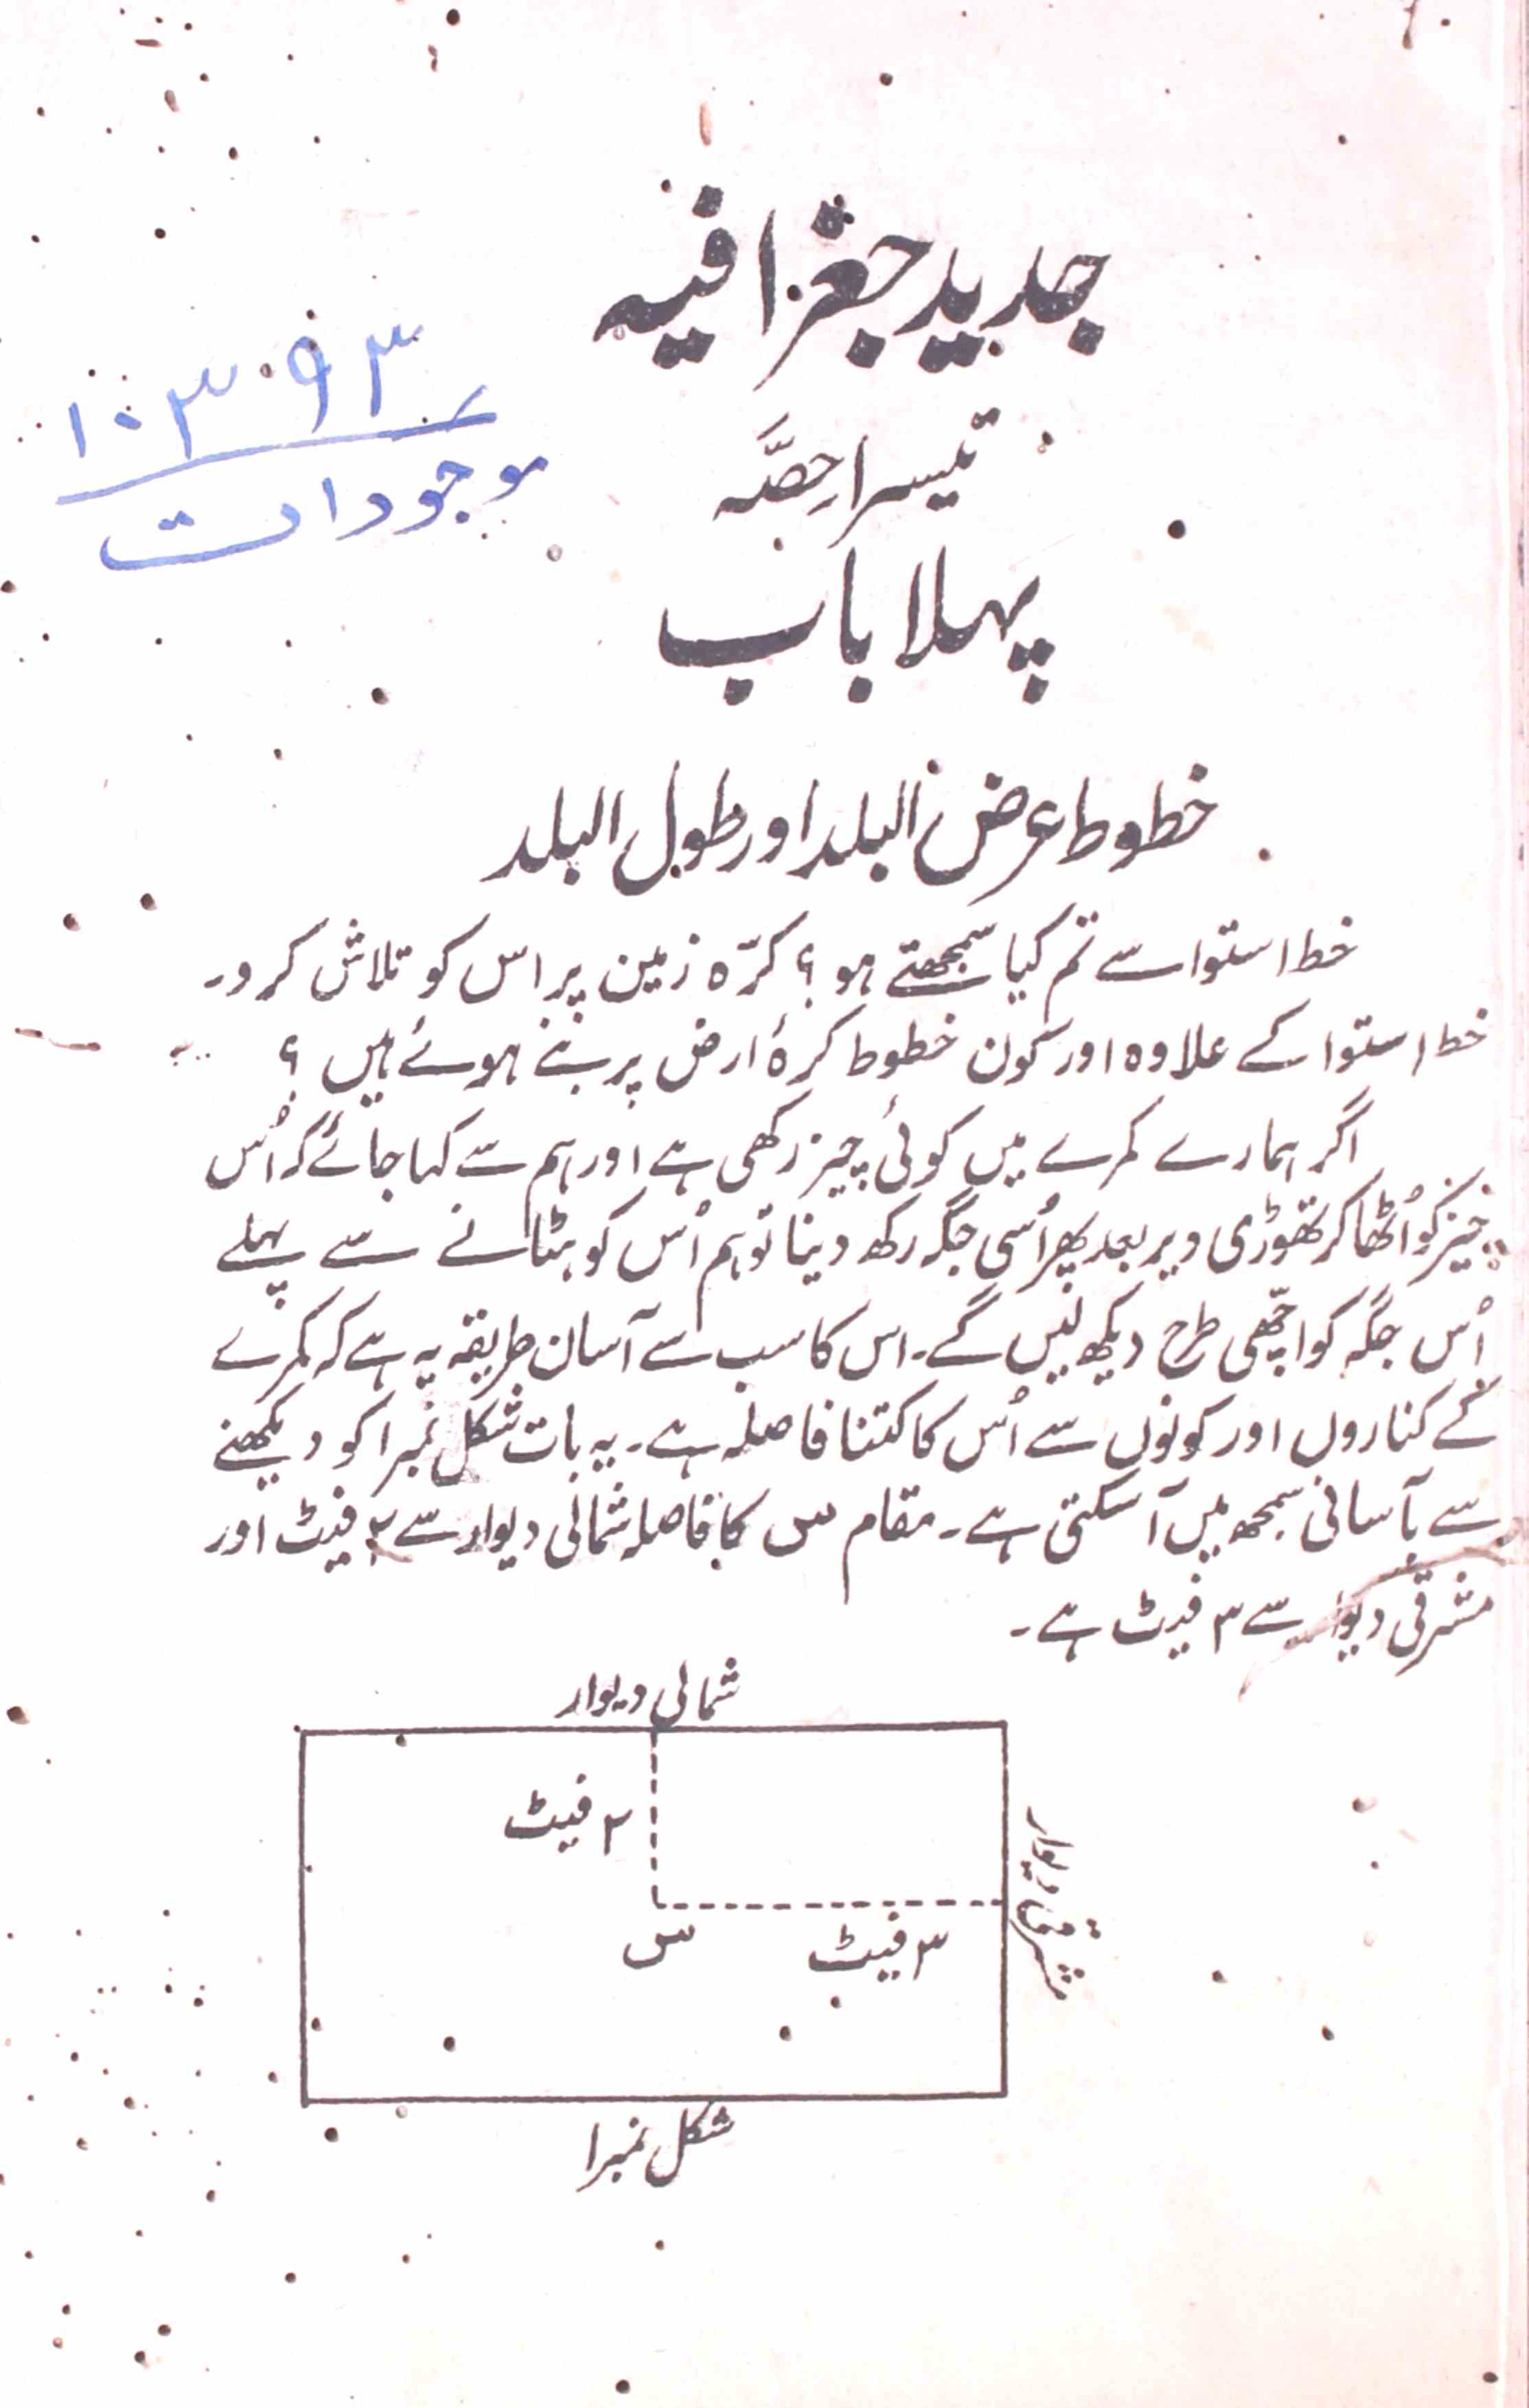 جدید جغرافیہ
۱۰۳۰۹۳
موجودات
تیسرا حصّہ
پہلا باب
خطوط عرض البلد اور طول البلد
خط استوا سے تم کیا سمجھتے ہو؟ کرّہ زمین پر اس کو تلاش کرو۔
خط استوا کے علاوہ اور کون خطوط کرۂ ارض پر بنے ہوئے ہیں؟
اگر ہمارے کمرے میں کوئی چیز رکھی ہے اور ہم سے کہا جائے کہ اُس
چیز کو اُٹھا کر تھوڑی دیر بعد پھر اُسی جگہ رکھ دینا تو ہم اُس کو ہٹانے سے پہلے
اُس جگہ کو اچّھی طرح دیکھ لیں گے۔ اس کا سب سے آسان طریقہ یہ ہے کہ کمرے
کے کناروں اور کونوں سے اُس کا کتنا فاصلہ ہے۔ یہ بات شکل نمبر ۱ کو دیکھنے
سے بآسانی سمجھ میں آ سکتی ہے۔ مقام س کا فاصلہ شمالی دیوار سے ۲ فیٹ اور
مشرقی دیوار سے ۳ فیٹ ہے۔
شمالی دیوار
۲ فیٹ
مشرقی دیوار
س
۳ فیٹ
شکل نمبر ۱